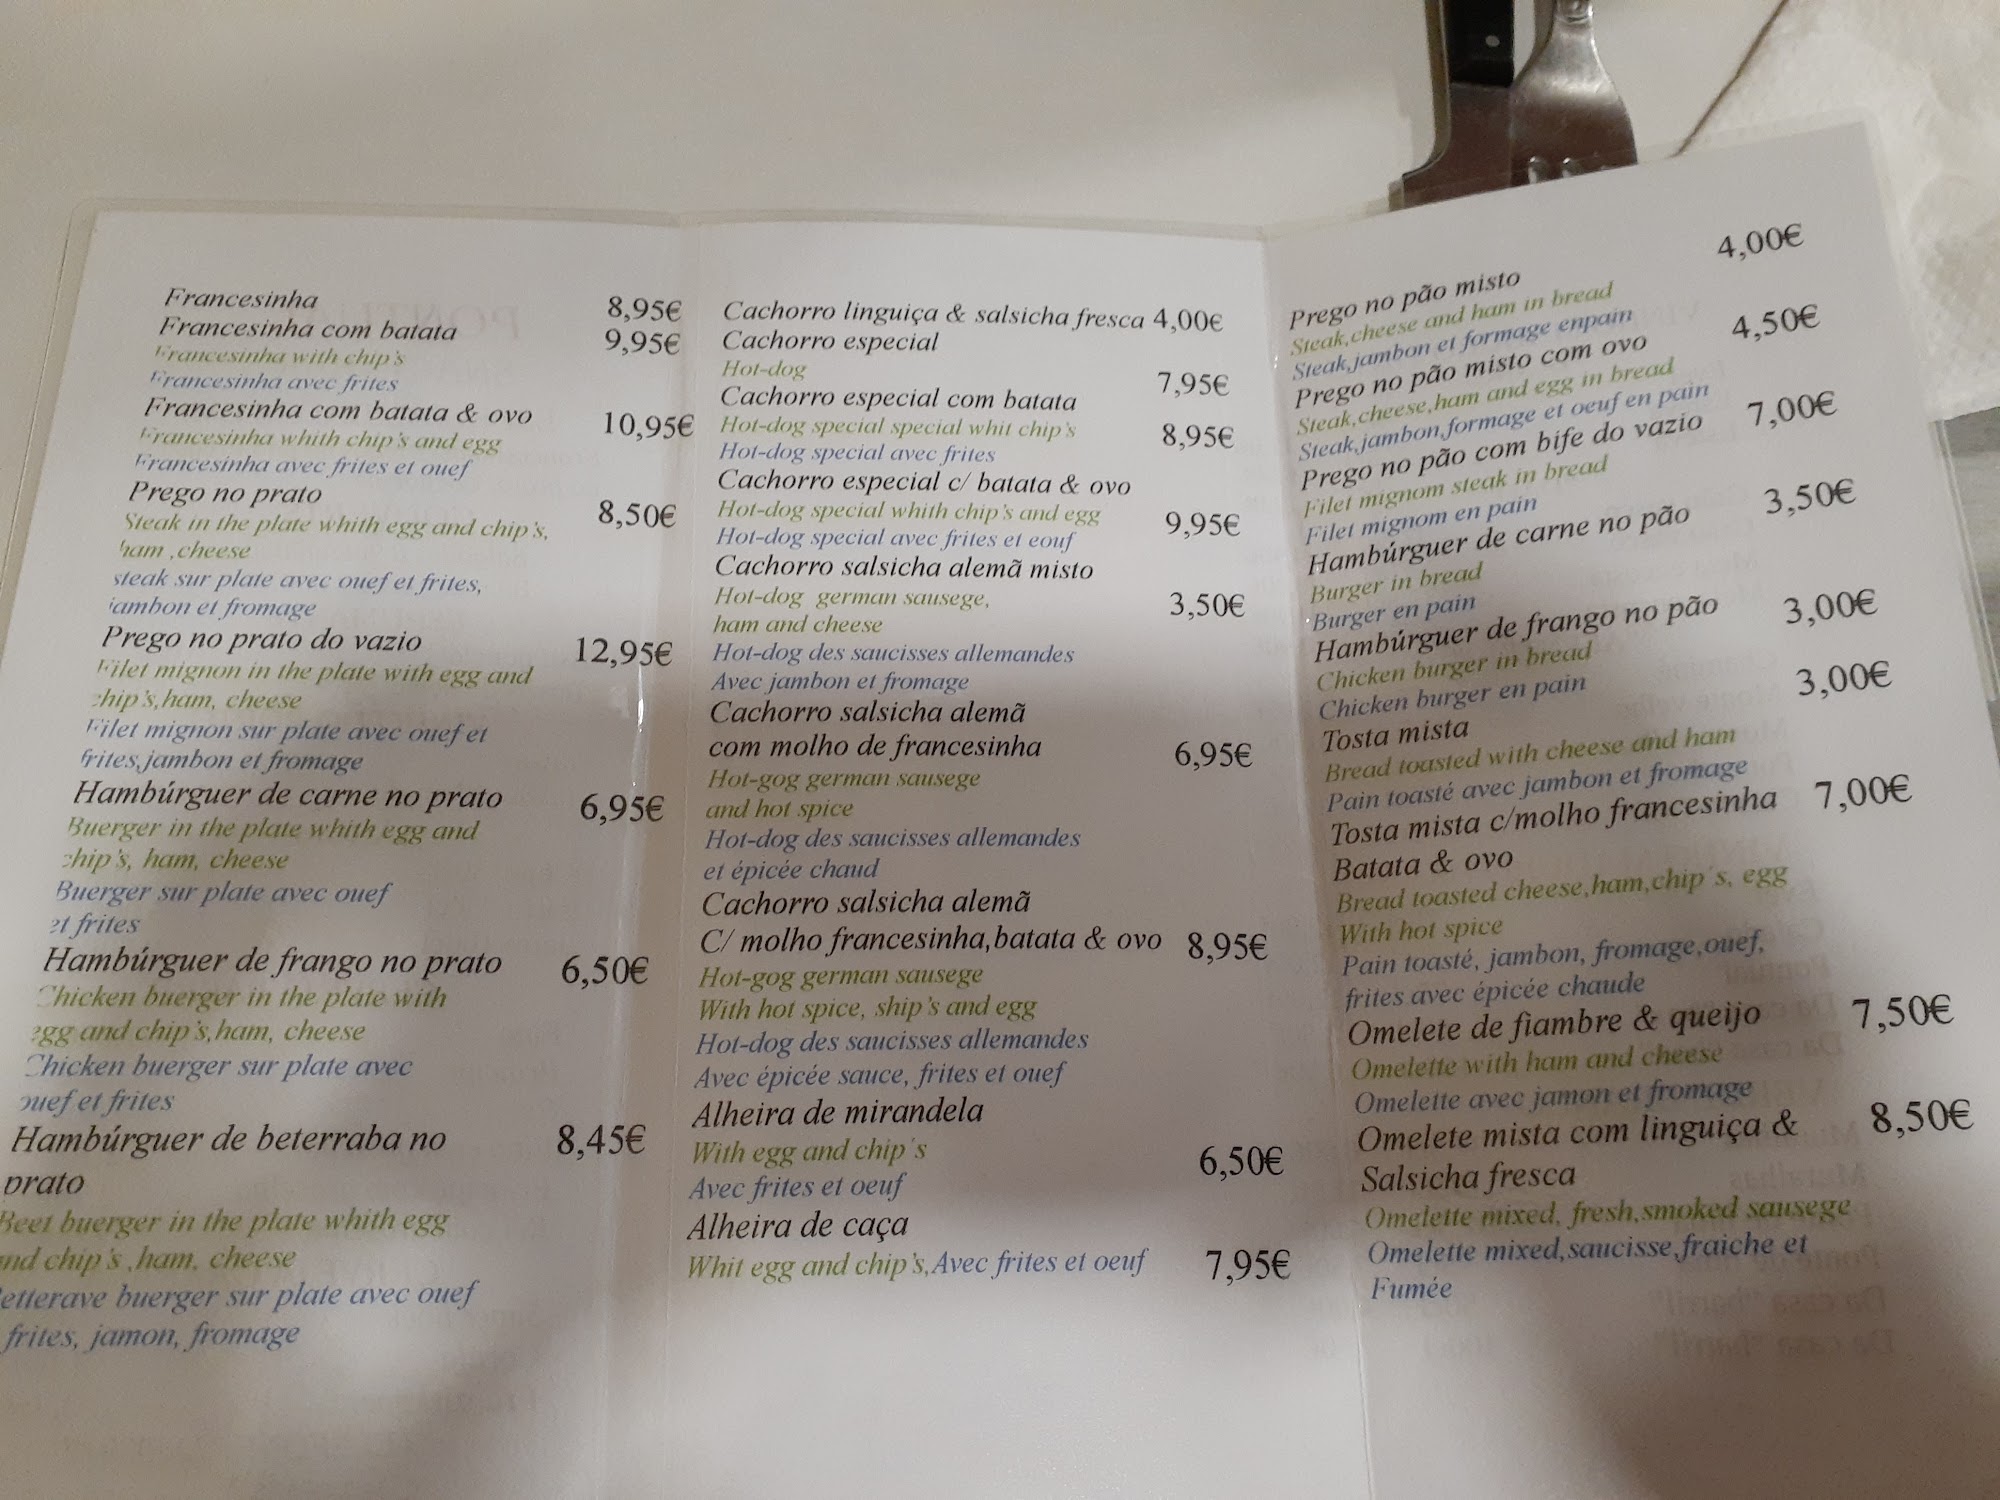 Francesinha 8,95€
Francesinha com batata 9,95€
Francesinha with chip's
Francesinha avec frites
Francesinha com batata & ovo 10,95€
Francesinha whith chip's and egg
Francesinha avec frites et ouef
Prego no prato 8,50€
Steak in the plate whith egg and chip's,
ham ,cheese
steak sur plate avec ouef et frites,
jambon et fromage
Prego no prato do vazio 12,95€
Filet mignon in the plate with egg and
chip's,ham, cheese
Filet mignon sur plate avec ouef et
frites,jambon et fromage
Hambúrguer de carne no prato 6,95€
Buerger in the plate whith egg and
chip's, ham, cheese
Buerger sur plate avec ouef
et frites
Hambúrguer de frango no prato 6,50€
Chicken buerger in the plate with
egg and chip's,ham, cheese
Chicken buerger sur plate avec
ouef et frites
Hambúrguer de beterraba no 8,45€
prato
Beet buerger in the plate whith egg
and chip's ,ham, cheese
Betterave buerger sur plate avec ouef
frites, jamon, fromage
Cachorro linguiça & salsicha fresca 4,00€
Cachorro especial
Hot-dog 7,95€
Cachorro especial com batata
Hot-dog special special whit chip's 8,95€
Hot-dog special avec frites
Cachorro especial c/ batata & ovo
Hot-dog special whith chip's and egg 9,95€
Hot-dog special avec frites et eouf
Cachorro salsicha alemã misto
Hot-dog german sausege, 3,50€
ham and cheese
Hot-dog des saucisses allemandes
Avec jambon et fromage
Cachorro salsicha alemã
com molho de francesinha 6,95€
Hot-gog german sausege
and hot spice
Hot-dog des saucisses allemandes
et épicée chaud
Cachorro salsicha alemã
C/ molho francesinha,batata & ovo 8,95€
Hot-gog german sausege
With hot spice, ship's and egg
Hot-dog des saucisses allemandes
Avec épicée sauce, frites et ouef
Alheira de mirandela
With egg and chip´s 6,50€
Avec frites et oeuf
Alheira de caça
Whit egg and chip's,Avec frites et oeuf 7,95€
Prego no pão misto 4,00€
Steak,cheese and ham in bread
Steak,jambon et formage enpain
Prego no pão misto com ovo 4,50€
Steak,cheese,ham and egg in bread
Steak,jambon,formage et oeuf en pain
Prego no pão com bife do vazio 7,00€
Filet mignom steak in bread
Filet mignom en pain
Hambúrguer de carne no pão 3,50€
Burger in bread
Burger en pain
Hambúrguer de frango no pão 3,00€
Chicken burger in bread
Chicken burger en pain
Tosta mista 3,00€
Bread toasted with cheese and ham
Pain toasté avec jambon et fromage
Tosta mista c/molho francesinha 7,00€
Batata & ovo
Bread toasted cheese,ham,chip´s, egg
With hot spice
Pain toasté, jambon, fromage,ouef,
frites avec épicée chaude
Omelete de fiambre & queijo 7,50€
Omelette with ham and cheese
Omelette avec jamon et fromage
Omelete mista com linguiça & 8,50€
Salsicha fresca
Omelette mixed, fresh,smoked sausege
Omelette mixed,saucisse,fraiche et
Fumée